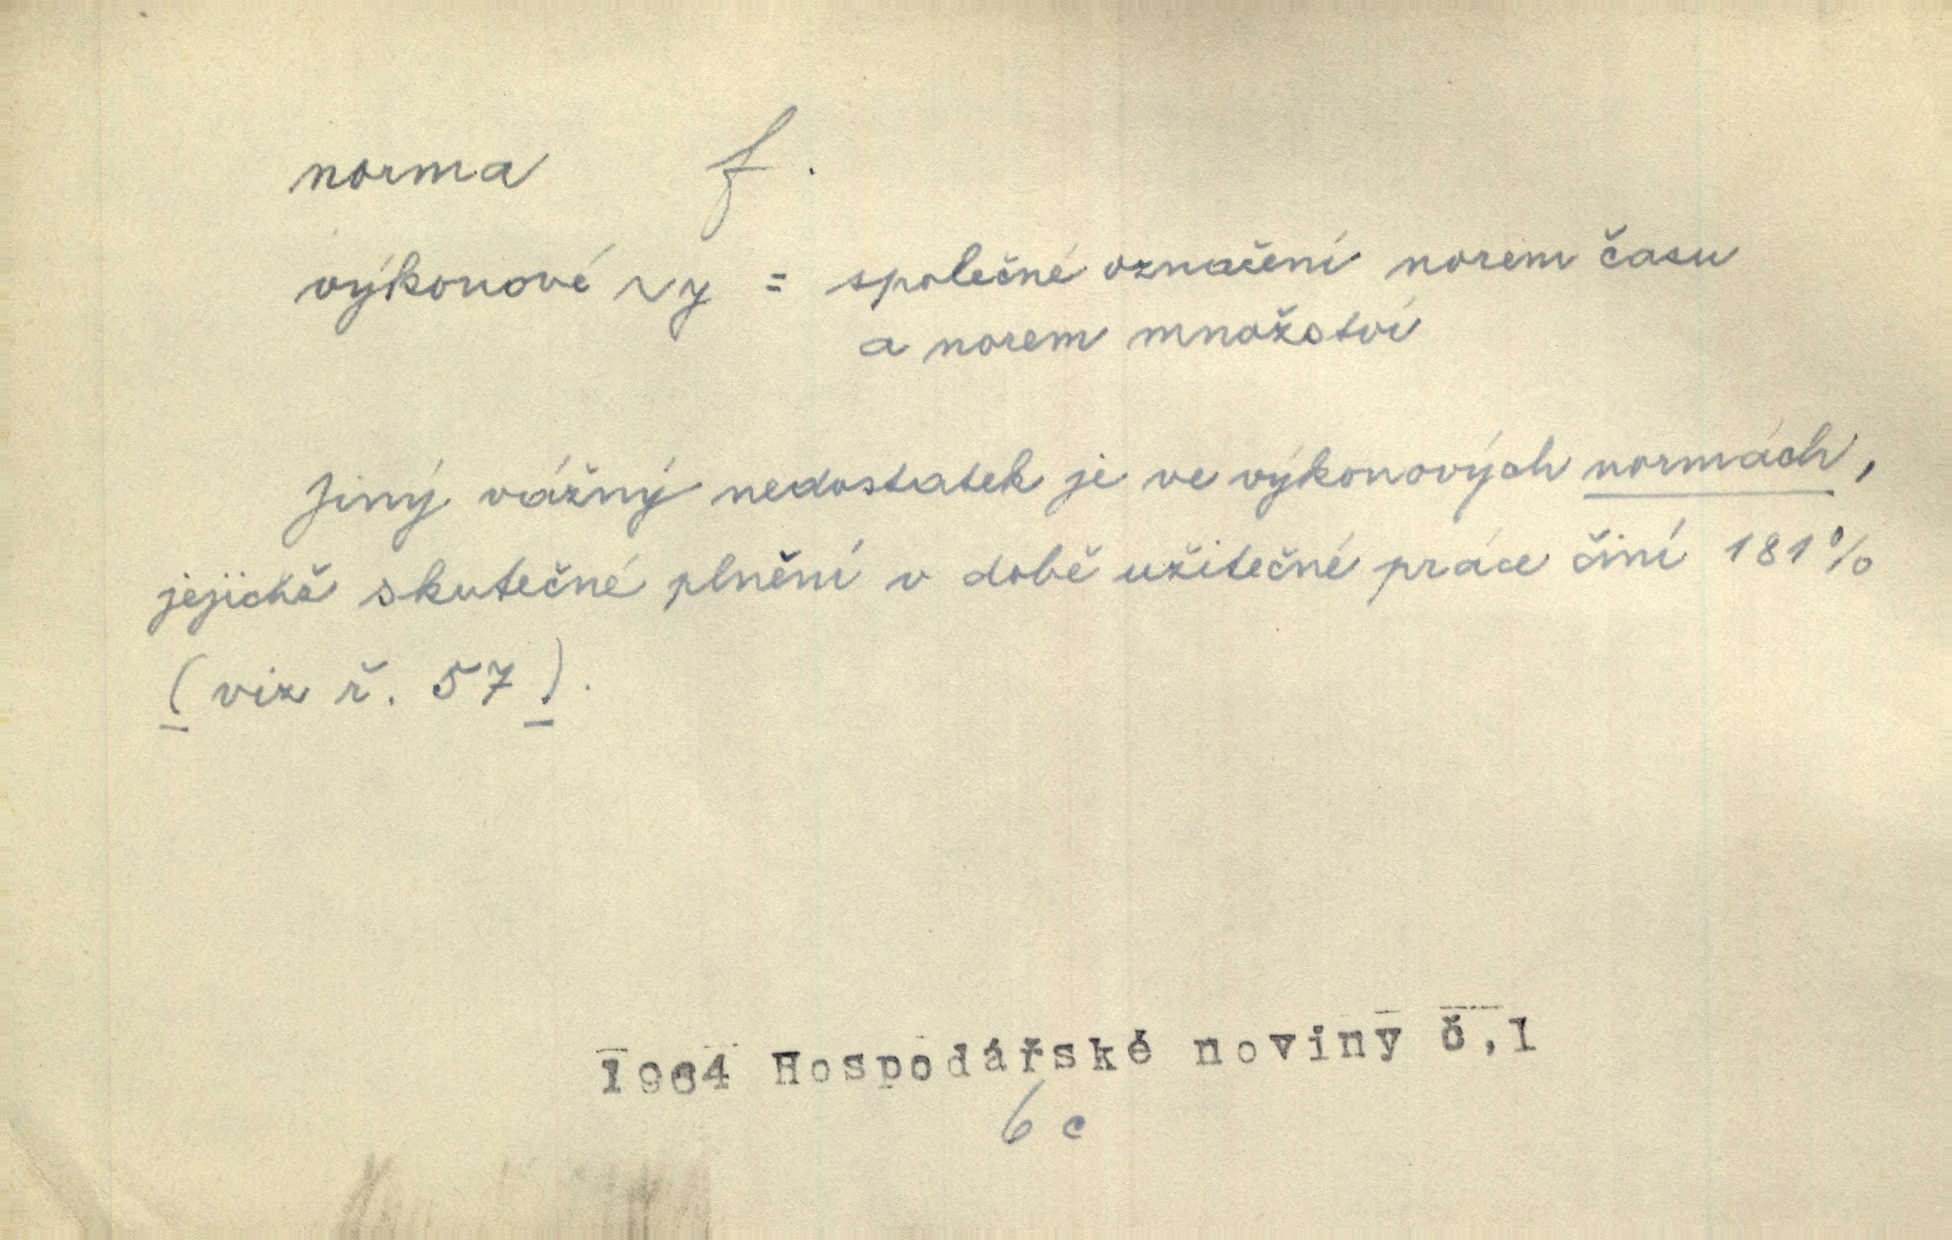 norma f.
výkonové ~y = společné označení norem času
a norem množství
Jiný vážný nedostatek je ve výkonových normách,
jejichž skutečné plnění v době užitečné práce činí 181%
(viz ř. 57).
1964 Hospodářské noviny č,1
6c